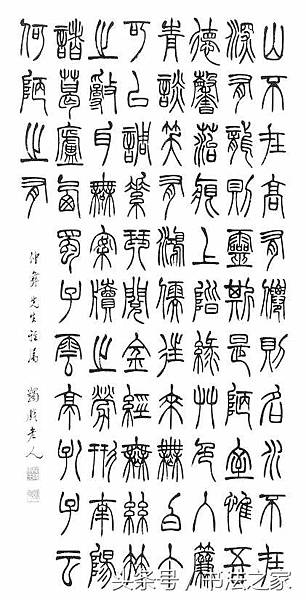 山不在高有僊則名水不在
深有龍則靈斯是陋室惟吾
德馨苔痕上階綠艸色入簾
青談笑有鴻儒往來無白丁
可以調素琴閱金經無絲竹
之亂耳無案牘之勞形南陽
諸葛廬西蜀子雲亭孔子云
何陋之有
先生雅屬 蠲戲老人
头条号/书法之家